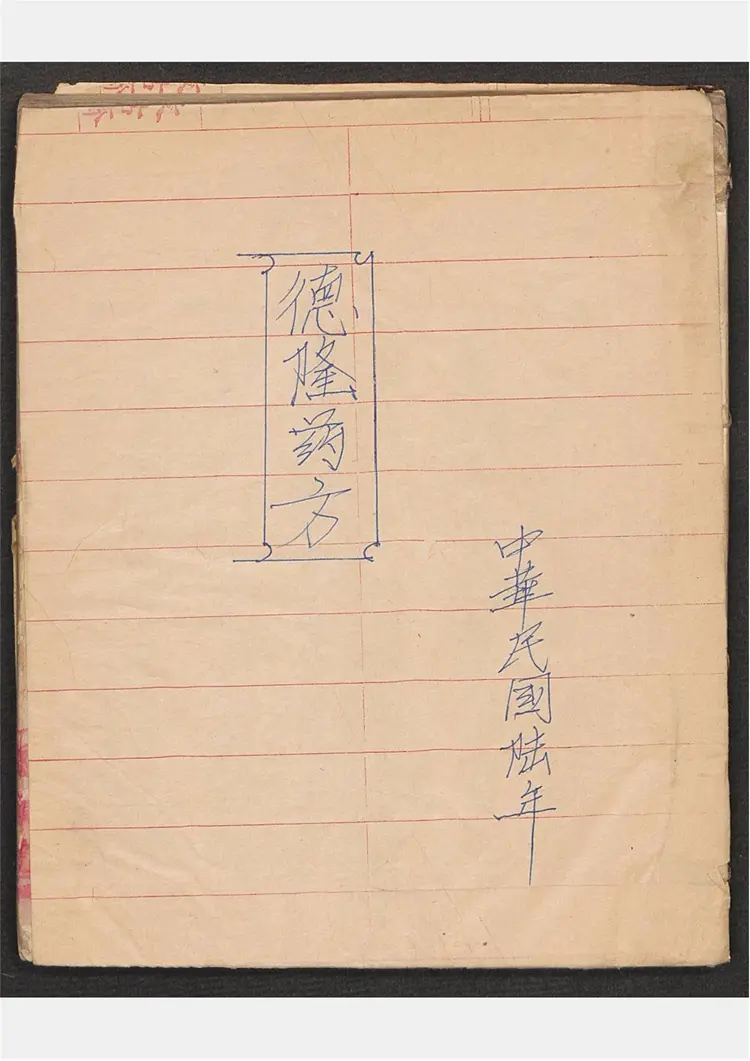 中華民國陸年
德隆药方